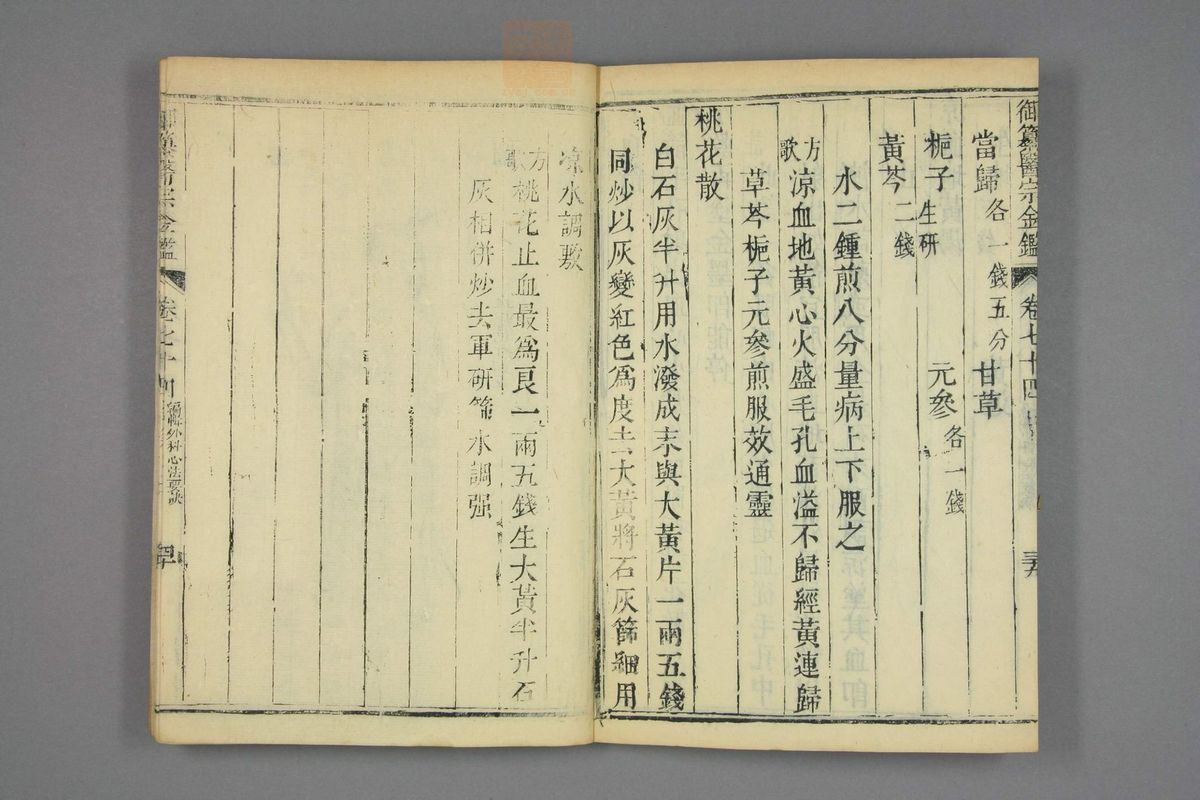 御纂醫宗金鑑 卷七十四
當歸各一錢五分 甘草
梔子生研 元參各一錢
黃芩二錢
水二鍾煎八分量病上下服之
方歌 涼血地黃心火盛毛孔血溢不歸經黃連歸
草芩梔子元參煎服效通靈
桃花散
白石灰半升用水潑成末與大黃片一兩五錢
同炒以灰變紅色爲度去大黃將石灰篩細用
凉水調敷
方歌 桃花止血最爲良一兩五錢生大黃半升石
灰相併炒去軍研篩水調强
御纂醫宗金鑑 卷七十四 編輯外科心法要訣 四十